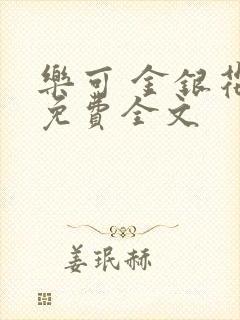 樂可 金銀花
免費全文
姜珉赫